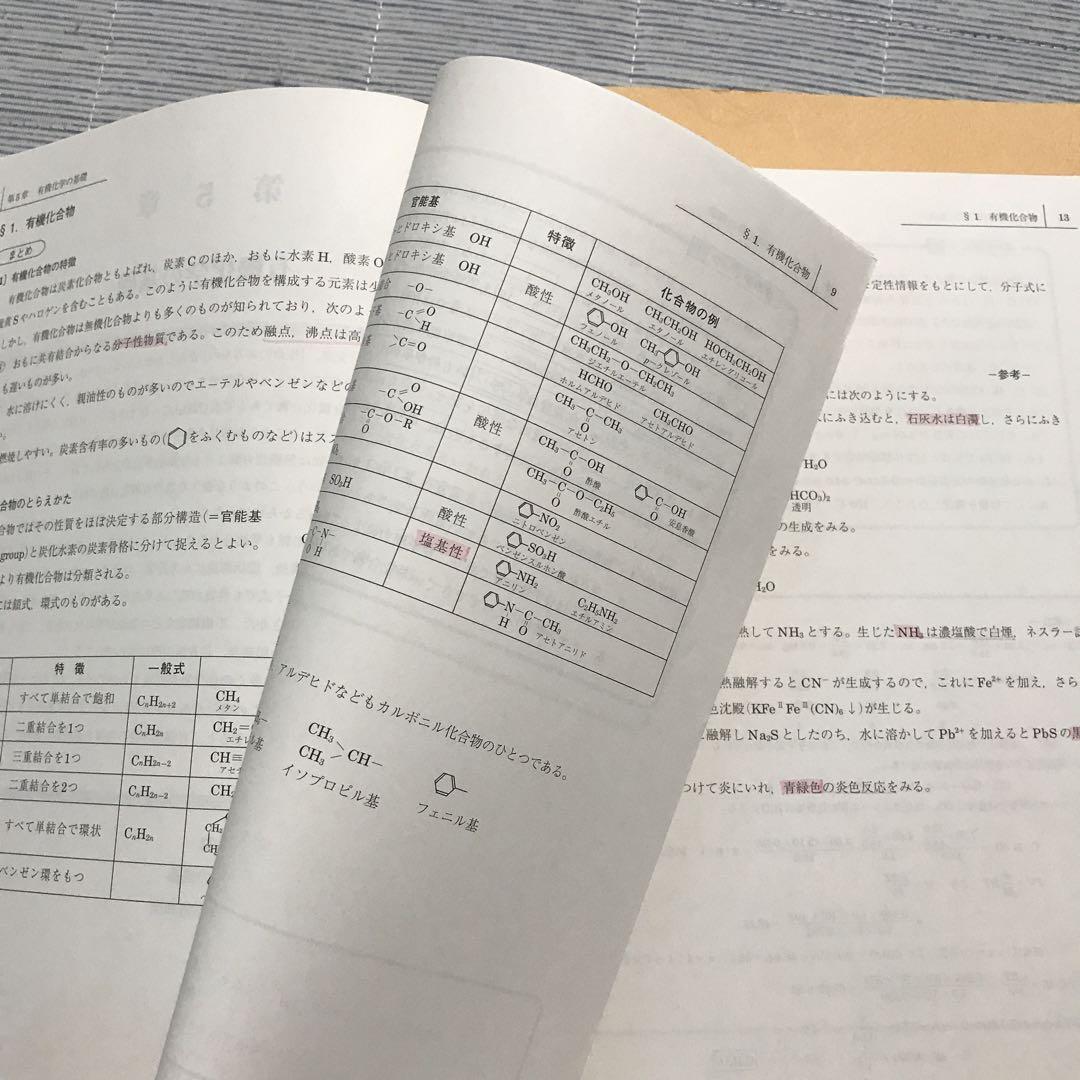 第5章 有機化学の基礎
§1. 有機化合物
まとめ
有機化合物の特徴
有機化合物は炭素化合物ともよばれ，炭素Cのほか，おもに水素H，酸素O
硫黄Sやハロゲンを含むこともある。このように有機化合物を構成する元素は少
しかし，有機化合物は無機化合物よりも多くのものが知られており，次のよ
おもに共有結合からなる分子性物質である。このため融点，沸点は高
も遅いものが多い。
水に溶けにくく，親油性のものが多いのでエーテルやベンゼンなどの
燃焼しやすい。炭素含有率の多いもの(をふくむものなど)はスス
合物のとらえかた
合物ではその性質をほぼ決定する部分構造(=官能基
group)と炭化水素の炭素骨格に分けて捉えるとよい。
より有機化合物は分類される。
には鎖式，環式のものがある。
特徴 一般式
すべて単結合で飽和 CnH2n+2 CH4
メタン
二重結合を1つ CnH2n CH2=
三重結合を1つ CnH2n−2 CH≡
二重結合を2つ CnH2n−2 CH2
すべて単結合で環状 CnH2n CH2
CH
ベンゼン環をもつ
§1. 有機化合物 9
官能基 特徴 化合物の例
ヒドロキシ基 OH CH3OH CH3CH2OH HOCH2CH2OH
メタノール エタノール エチレングリコール
ヒドロキシ基 OH 酸性 OH CH3 OH
フェノール p-クレゾール
−O− CH3CH2−O−CH2CH3
ジエチルエーテル
−C=O H HCHO CH3CHO
ホルムアルデヒド アセトアルデヒド
>C=O CH3−C−CH3
O
アセトン
−C=O OH 酸性 CH3−C−OH C−OH
O O
酢酸 安息香酸
−C−O−R CH3−C−O−C2H5
O O
酢酸エチル
NO2
ニトロベンゼン
SO3H 酸性 SO3H
ベンゼンスルホン酸
塩基性 NH2 C2H5NH2
アニリン エチルアミン
−C−N− N−C−CH3
O H H O
アセトアニリド
アルデヒドなどもカルボニル化合物のひとつである。
CH3
CH3 CH−
イソプロピル基 フェニル基
§1. 有機化合物 13
定性情報をもとにして，分子式に
−参考−
には次のようにする。
にふき込むと，石灰水は白濁し，さらにふき
H2O
HCO3)2
透明
の生成をみる。
をみる。
H2O
熱してNH3とする。生じたNH3は濃塩酸で白煙，ネスラー試
熱融解するとCN−が生成するので，これにFe2+を加え，さら
色沈殿(KFeⅡFeⅢ(CN)6↓)が生じる。
に融解しNa2Sとしたのち，水に溶かしてPb2+を加えるとPbSの黒
つけて炎にいれ，青緑色の炎色反応をみる。